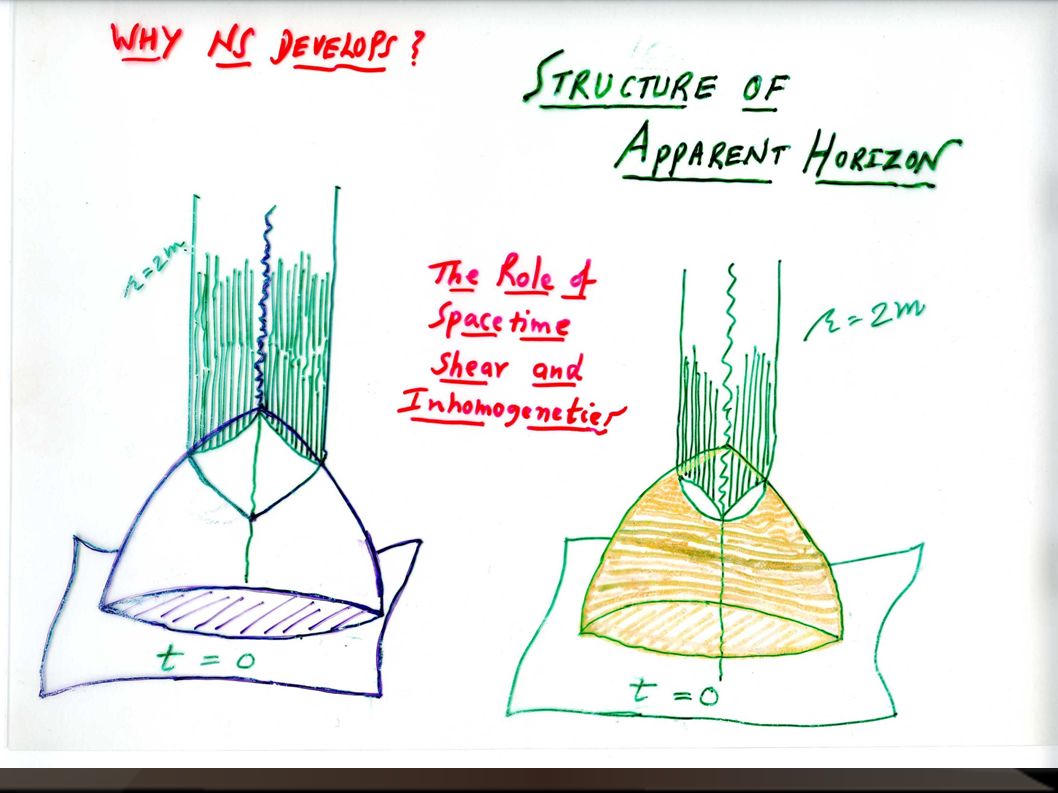 WHY NS DEVELOPS?
STRUCTURE OF
APPARENT HORIZON
r=2m
The Role of
Spacetime
Shear and
Inhomogenetier
r=2m
t = 0
t = 0